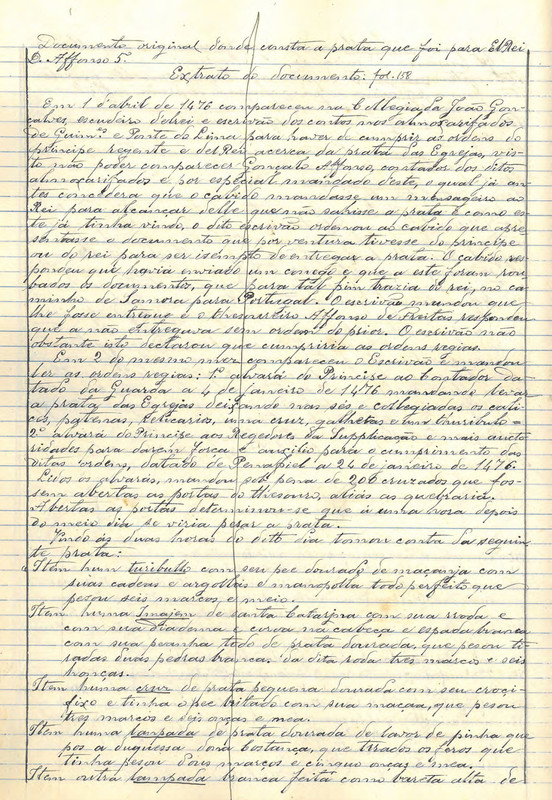 Documento original donde consta a prata que foi para El Rei
D. Affonso 5.
Extrato do documento. fol. 158
Em 1 d'abril de 1476 compareceu na Collegiada João Gon-
çalves, escudeiro d'elrei e escrivão dos contos nos almoxarifados
de Guimes e Ponte do Lima para haver de cumprir as ordens do
principe regente e del Rei acerca da prata das Egrejas, vis-
to não poder comparecer Gonçalo Affonso, contador dos ditos
almoxarifados e por especial mandado deste, o qual já an-
tes concedera que o cabido mandasse um mensageiro ao
Rei para alcançar delle que não sahisse a prata e como es-
te já tinha vindo, o dito escrivão ordenou ao cabido que apre
sentasse o documento que por ventura tivesse do principe
ou do rei para ser isempto de entregar a prata. O cabido res
pondeu que havia enviado um conego e que a este foram rou-
bados os documentos, que para tal fim trazia do rei, no ca-
minho de Samora para Portugal. O escrivão mandou que
lhe fosse entregue e o thesoureiro Affonso de Freitas respondeu
que a não entregava sem ordem do prior. O escrivão não
obstante isto declarou que cumpriria as ordens regias.
Em 2 do mesmo mez compareceu o Escrivão e mandou
ler as ordens regias: 1º alvará do Principe ao Contador da-
tado da Guarda a 4 de janeiro de 1476 mandando levar
a prata das Egrejas deixando nas sés e collegiadas os cali-
ces, patenas, Relicarios, uma cruz, galhetas e um thuribulo =
2º alvará do Principe aos Regedores da Supplicação e mais aucto
ridades para darem força e auxilio para o cumprimento das
ditas ordens, datado de Penafiel a 24 de janeiro de 1476.
Lidos os alvarás, mandou sob pena de 200 cruzados que fos-
sem abertas as portas do thesouro, aliás as quebraria.
Abertas as portas determinou-se que á uma hora depois
do meio dia se viria pesar a prata.
Vindo ás duas horas do dito dia tomou conta da seguin-
te prata:
Item hun turibullo com seu pee dourado de maçanja com
suas cadeas e argollas e manopolla todo perfeito que
pesou seis marcos e meio.
Item huma Imajem de santa Catarina com sua rroda e
com sua diadema e coroa na cabeça e espada branca
com sua peanha todo de prata dourada, que pesou ti-
radas duas pedras branca. da dita roda tres marcos e seis
honças.
Item huma cruz de prata pequena dourada com seu croçi-
fixo e tinha o pee britado com sua maçaa, que pesou
tres marcos e deis onças e mea.
Item huma lampada de prata dourada de lavor de pinha que
pos a duquessa dona Costança, que tirados os feros que
tinha pesou dous marcos e cinquo onças e mea.
Item outra lampada branca feita como bareta alta de